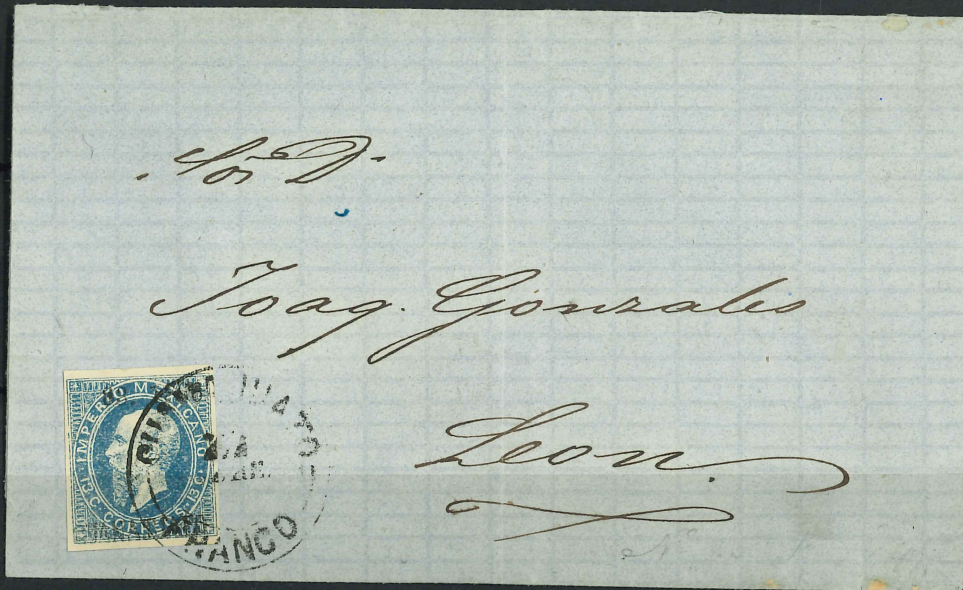 Sor. D.
Joaq. Gonzales
Leon.
IMPERIO MEXICANO
13 C. CORREOS 13 C.
GUANAJUATO
FRANCO